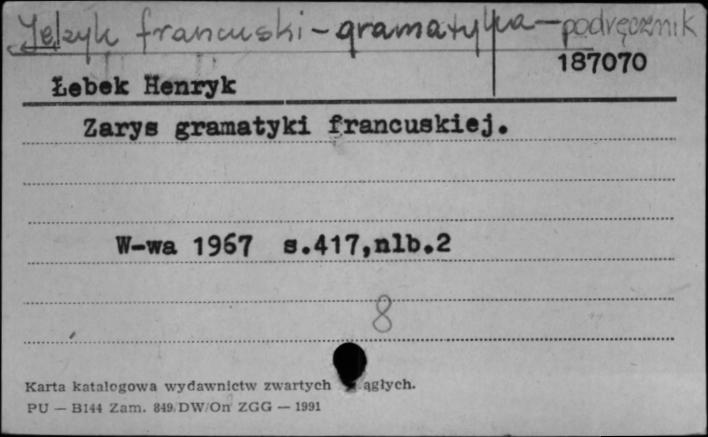 Język francuski - gramatyka - podręcznik
187070
Łebek Henryk
Zarys gramatyki francuskiej.
W-wa 1967 s.417,nlb.2
8
Karta katalogowa wydawnictw zwartych ągłych.
PU — B144 Zam. 849/DW/On ZGG — 1991